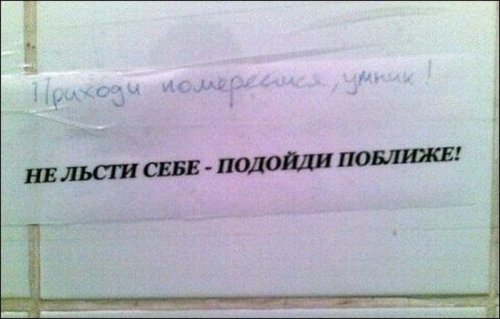 Приходи померяемся, умник!
НЕ ЛЬСТИ СЕБЕ - ПОДОЙДИ ПОБЛИЖЕ!